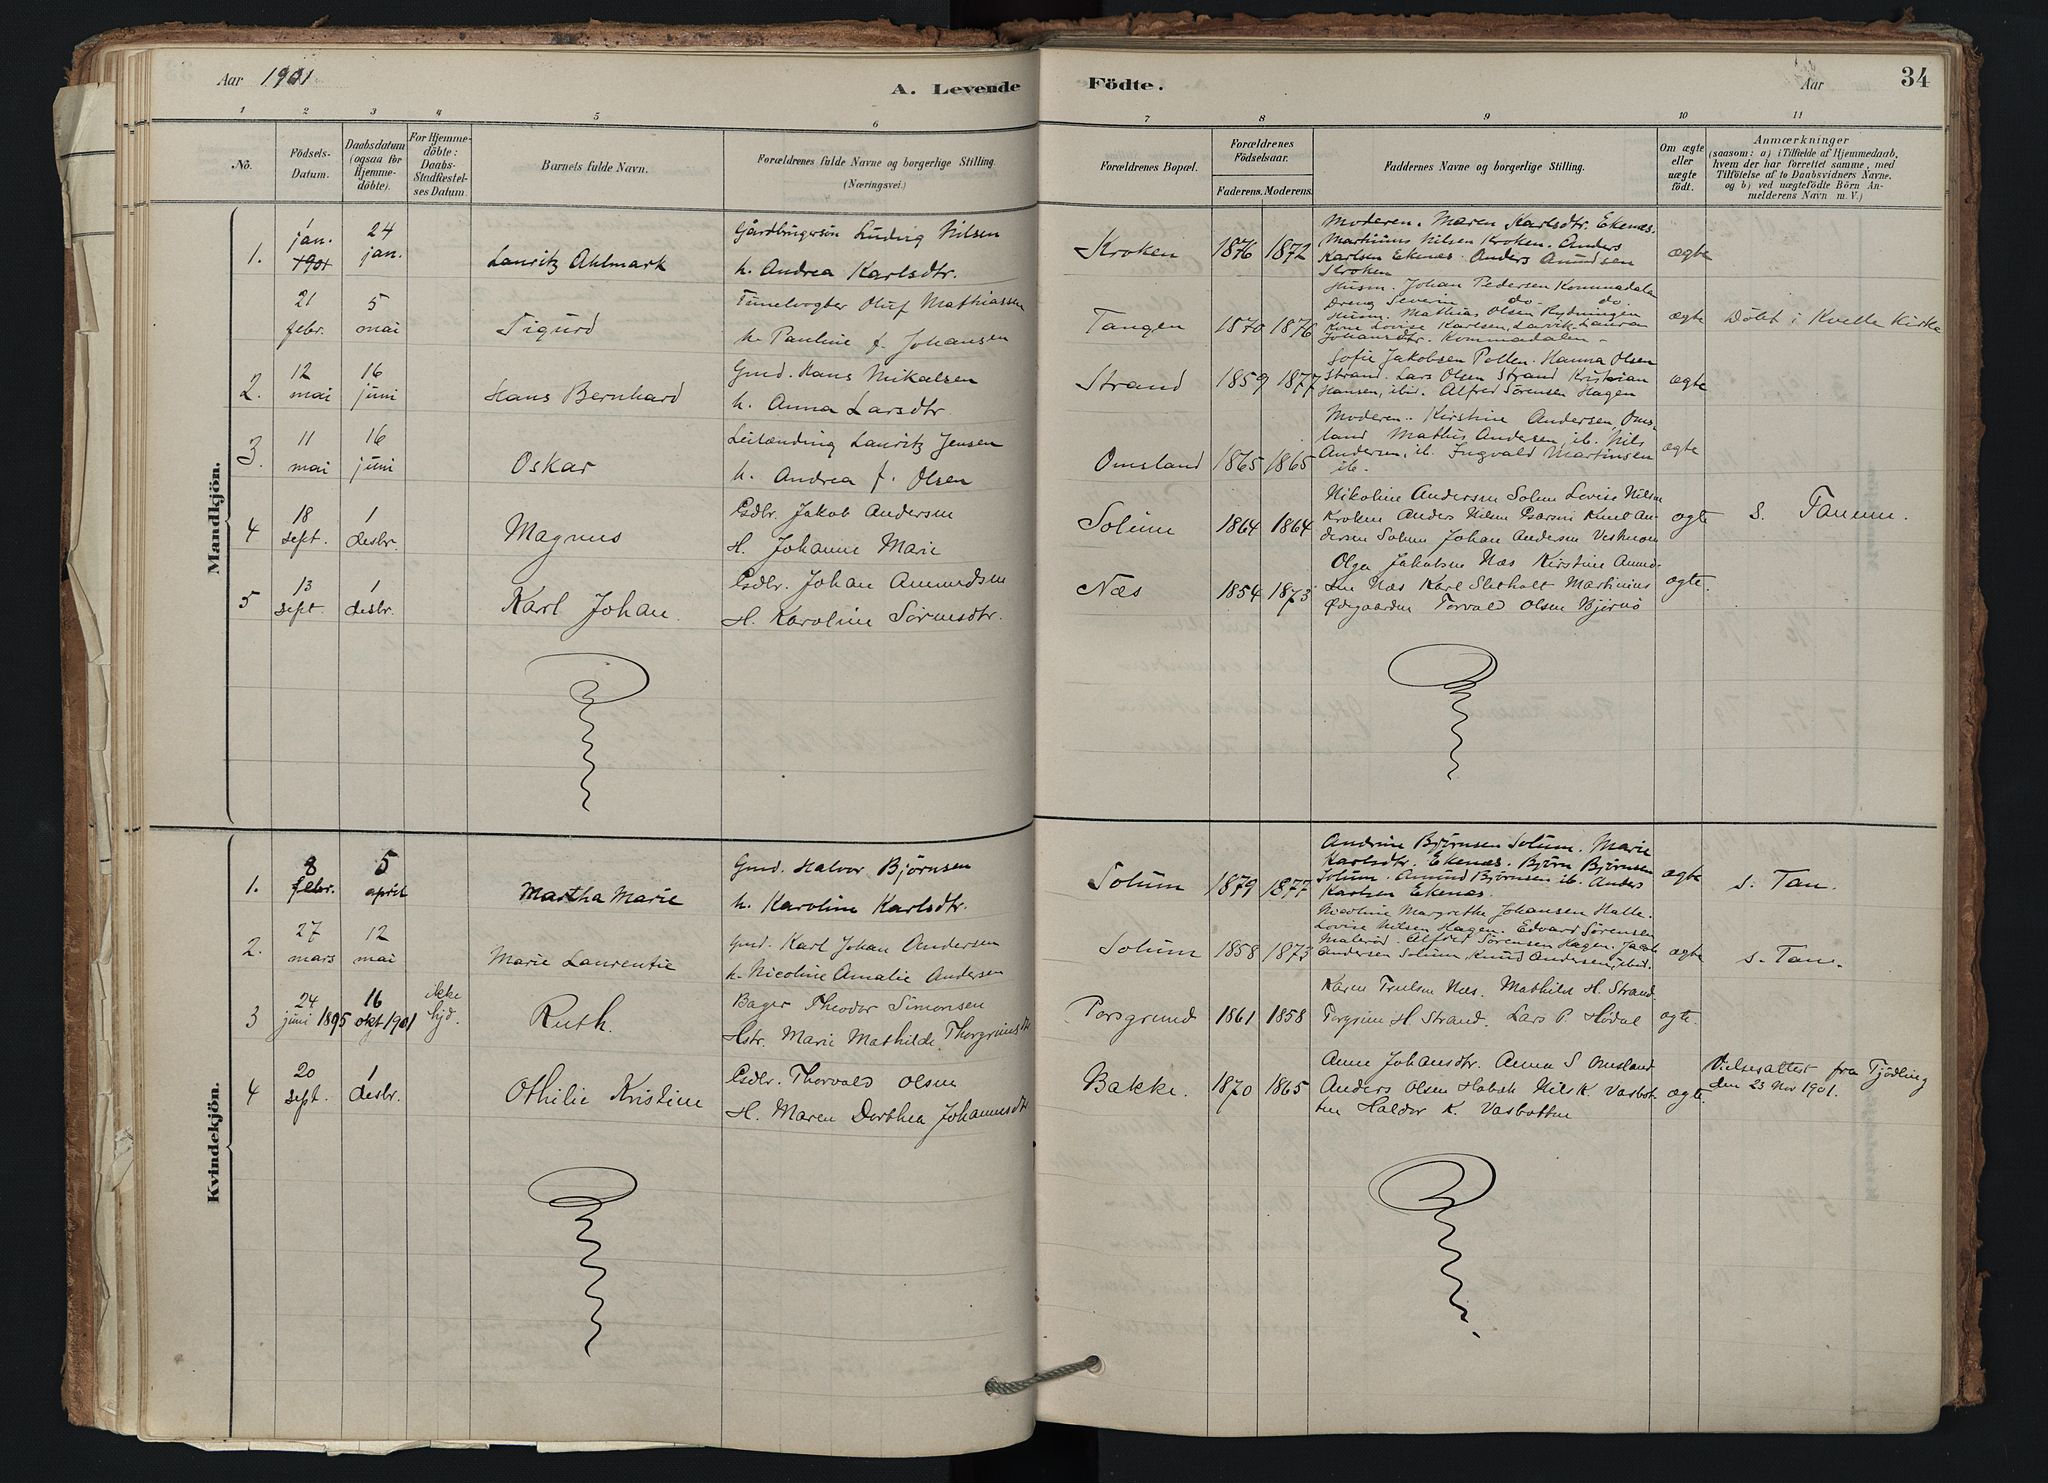 Aar 1901
A. Levende
Födte.
Aar
34
1 2 3 4 5 6
7 8 9 10 11
No.
Födsels-
Datum.
Daabsdatum
(ogsaa for
Hjemme-
döbte).
For Hjemme-
döbte:
Daabs-
Stadfæstel-
ses Datum.
Barnets fulde Navn.
Forældrenes fulde Navne og borgerlige Stilling.
(Næringsvei.)
Forældrenes Bopæl.
Forældrenes
Födselsaar.
Faderens. Moderens.
Faddernes Navne og borgerlige Stilling.
Om ægte
eller
uægte
födt.
Anmærkninger
(saasom: a) i Tilfælde af Hjemmedaab,
hvem der har forrettet samme, med
Tilföielse af to Daabsvidners Navne,
og b) ved uægtefödte Börn An-
melderens Navn m. V.)
Mandkjön.
1.
1
jan.
1901
24
jan.
Lauritz Ahlmark
Gårdbrugersøn Ludvig Nilsen
h. Andrea Karlsdtr.
Kroken
1876 1872
Moderen. Maren Karlsdtr. Ekenæs.
Martinius Nilsen Kroken. Anders
Karlsen Ekenæs. Anders Amundsen
Kroken
ægte
21
febr.
5
mai
Sigurd
Oluf Mathiassen
h. Pauline f. Johansen
Tangen
1870 1876
Husm. Johan Pedersen Kommadalen
Dreng Severin do. do.
Husm. Mathias Olsen Rydningen
Kone Lovise Karlsen, Larvik. Laura
Johansdtr. Kommadalen
ægte
Døbt i Kvelle Kirke
2.
12
mai
16
juni
Hans Bernhard
Gmd. Hans Nikalsen
h. Anna Larsdtr.
Strand
1859 1877
Sofie Jakobsen Pollen. Hanna Olsen
Strand. Lars Olsen Strand Kristian
Hansen, ibid. Alfred Sørensen Hagen
ægte
3.
11
mai
16
juni
Oskar
Leilænding Lauritz Jensen
h. Andrea f. Olsen
Omsland
1865 1865
Moderen. Kirstine Andersen Oms-
land Mathis Andersen, ib. Nils
Andersen, ib. Ingvald Martinsen
ib.
ægte
4
18
sept.
1
desbr.
Magnus
Gdbr. Jakob Andersen
H. Johanne Marie
Solum
1864 1864
Nikoline Andersen Solum Lovise Nilsen
Kroken Anders Nilsen Knut An-
dersen Solum Johan Andersen
ægte
s. Tanum.
5
13
sept.
1
desbr.
Karl Johan.
Gdbr. Johan Amundsen
H. Karoline Sørensdtr.
Næs
1854 1873
Olga Jakobsen Næs Kirstine Amund-
sen Næs Karl Sletholt Martinius
Ødegaarden Torvald Olsen Bjørnø
ægte.
Kvindekjön.
1.
8
febr.
5
april
Martha Marie
Gmd. Halvor Bjørnsen
h. Karoline Karlsdtr.
Solum
1879 1877
Andrine Bjørnsen Solum. Marie
Karlsdtr. Ekenæs. Bjørn Bjørnsen
Solum. Amund Bjørnsen ib. Anders
Karlsen Ekenæs.
ægte
s. Tan.
2.
27
mars
12
mai
Marie Laurentie
Gmd. Karl Johan Andersen
h. Nicoline Amalie Andersen
Solum
1858 1873
Nicoline Margrethe Johansen Halle.
Lovise Nilsen Hagen. Edvard Sørensen
Malerød. Alfred Sørensen Hagen. Jacob
Andersen Solum, Knud Andersen, ibid.
ægte
s. Tan.
3
24
juni 1895
16
okt 1901
ikke
hjd.
Ruth.
Bager Theodor Simonsen
Hstr. Marie Mathilde Thorgrimsdtr
Porsgrund
1861 1858
Karen Trulsen Næs. Mathilde H. Strand
Torgrim H. Strand. Lars P. Hødal
ægte.
4
20
sept.
1
desbr.
Othilie Kristine
Gdbr. Thorvald Olsen
H. Maren Dorthea Johannesdtr
Bakke.
1870 1865
Anne Johansdtr. Anna S Omsland
Anders Olsen Nils K. Vasbot-
ten Haldor K. Vasbotten
ægte.
Vielsesattest fra Tjødling
den 23 Nov 1901.